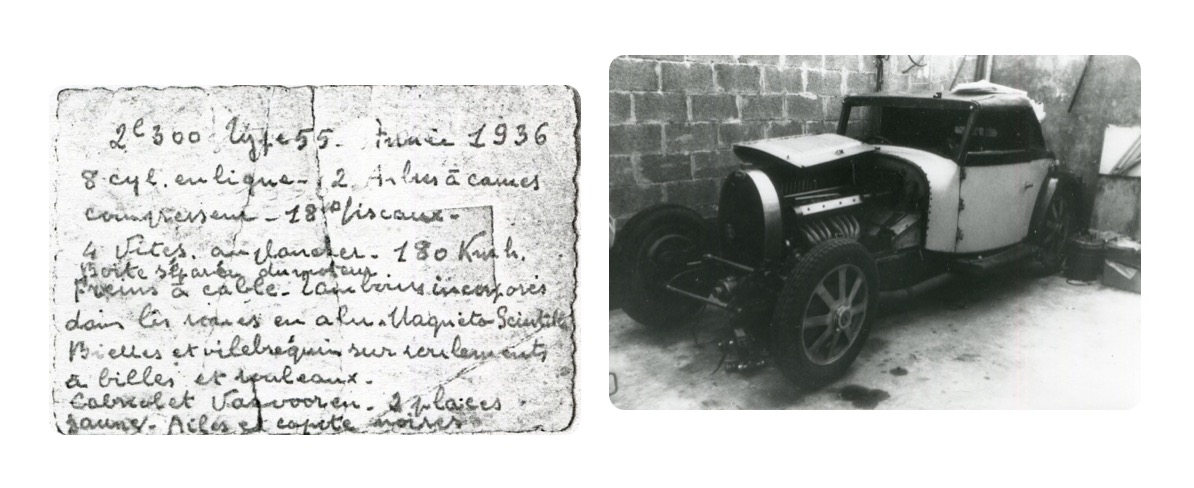 2l300 Type 55. Année 1936
8 cyl. en ligne - 2 Arbres à cames
compresseur - 18 fiscaux -
4 Vites. au plancher. 180 Km h.
Boite séparée du moteur.
freins à cable - tambours incorporés
dans les roues en alu. Magneto Scintilla
Bielles et vilebrequin sur roulements
à billes et rouleaux.
Cabriolet Vanvooren - 2 places
Jaune - Ailes et capote noires